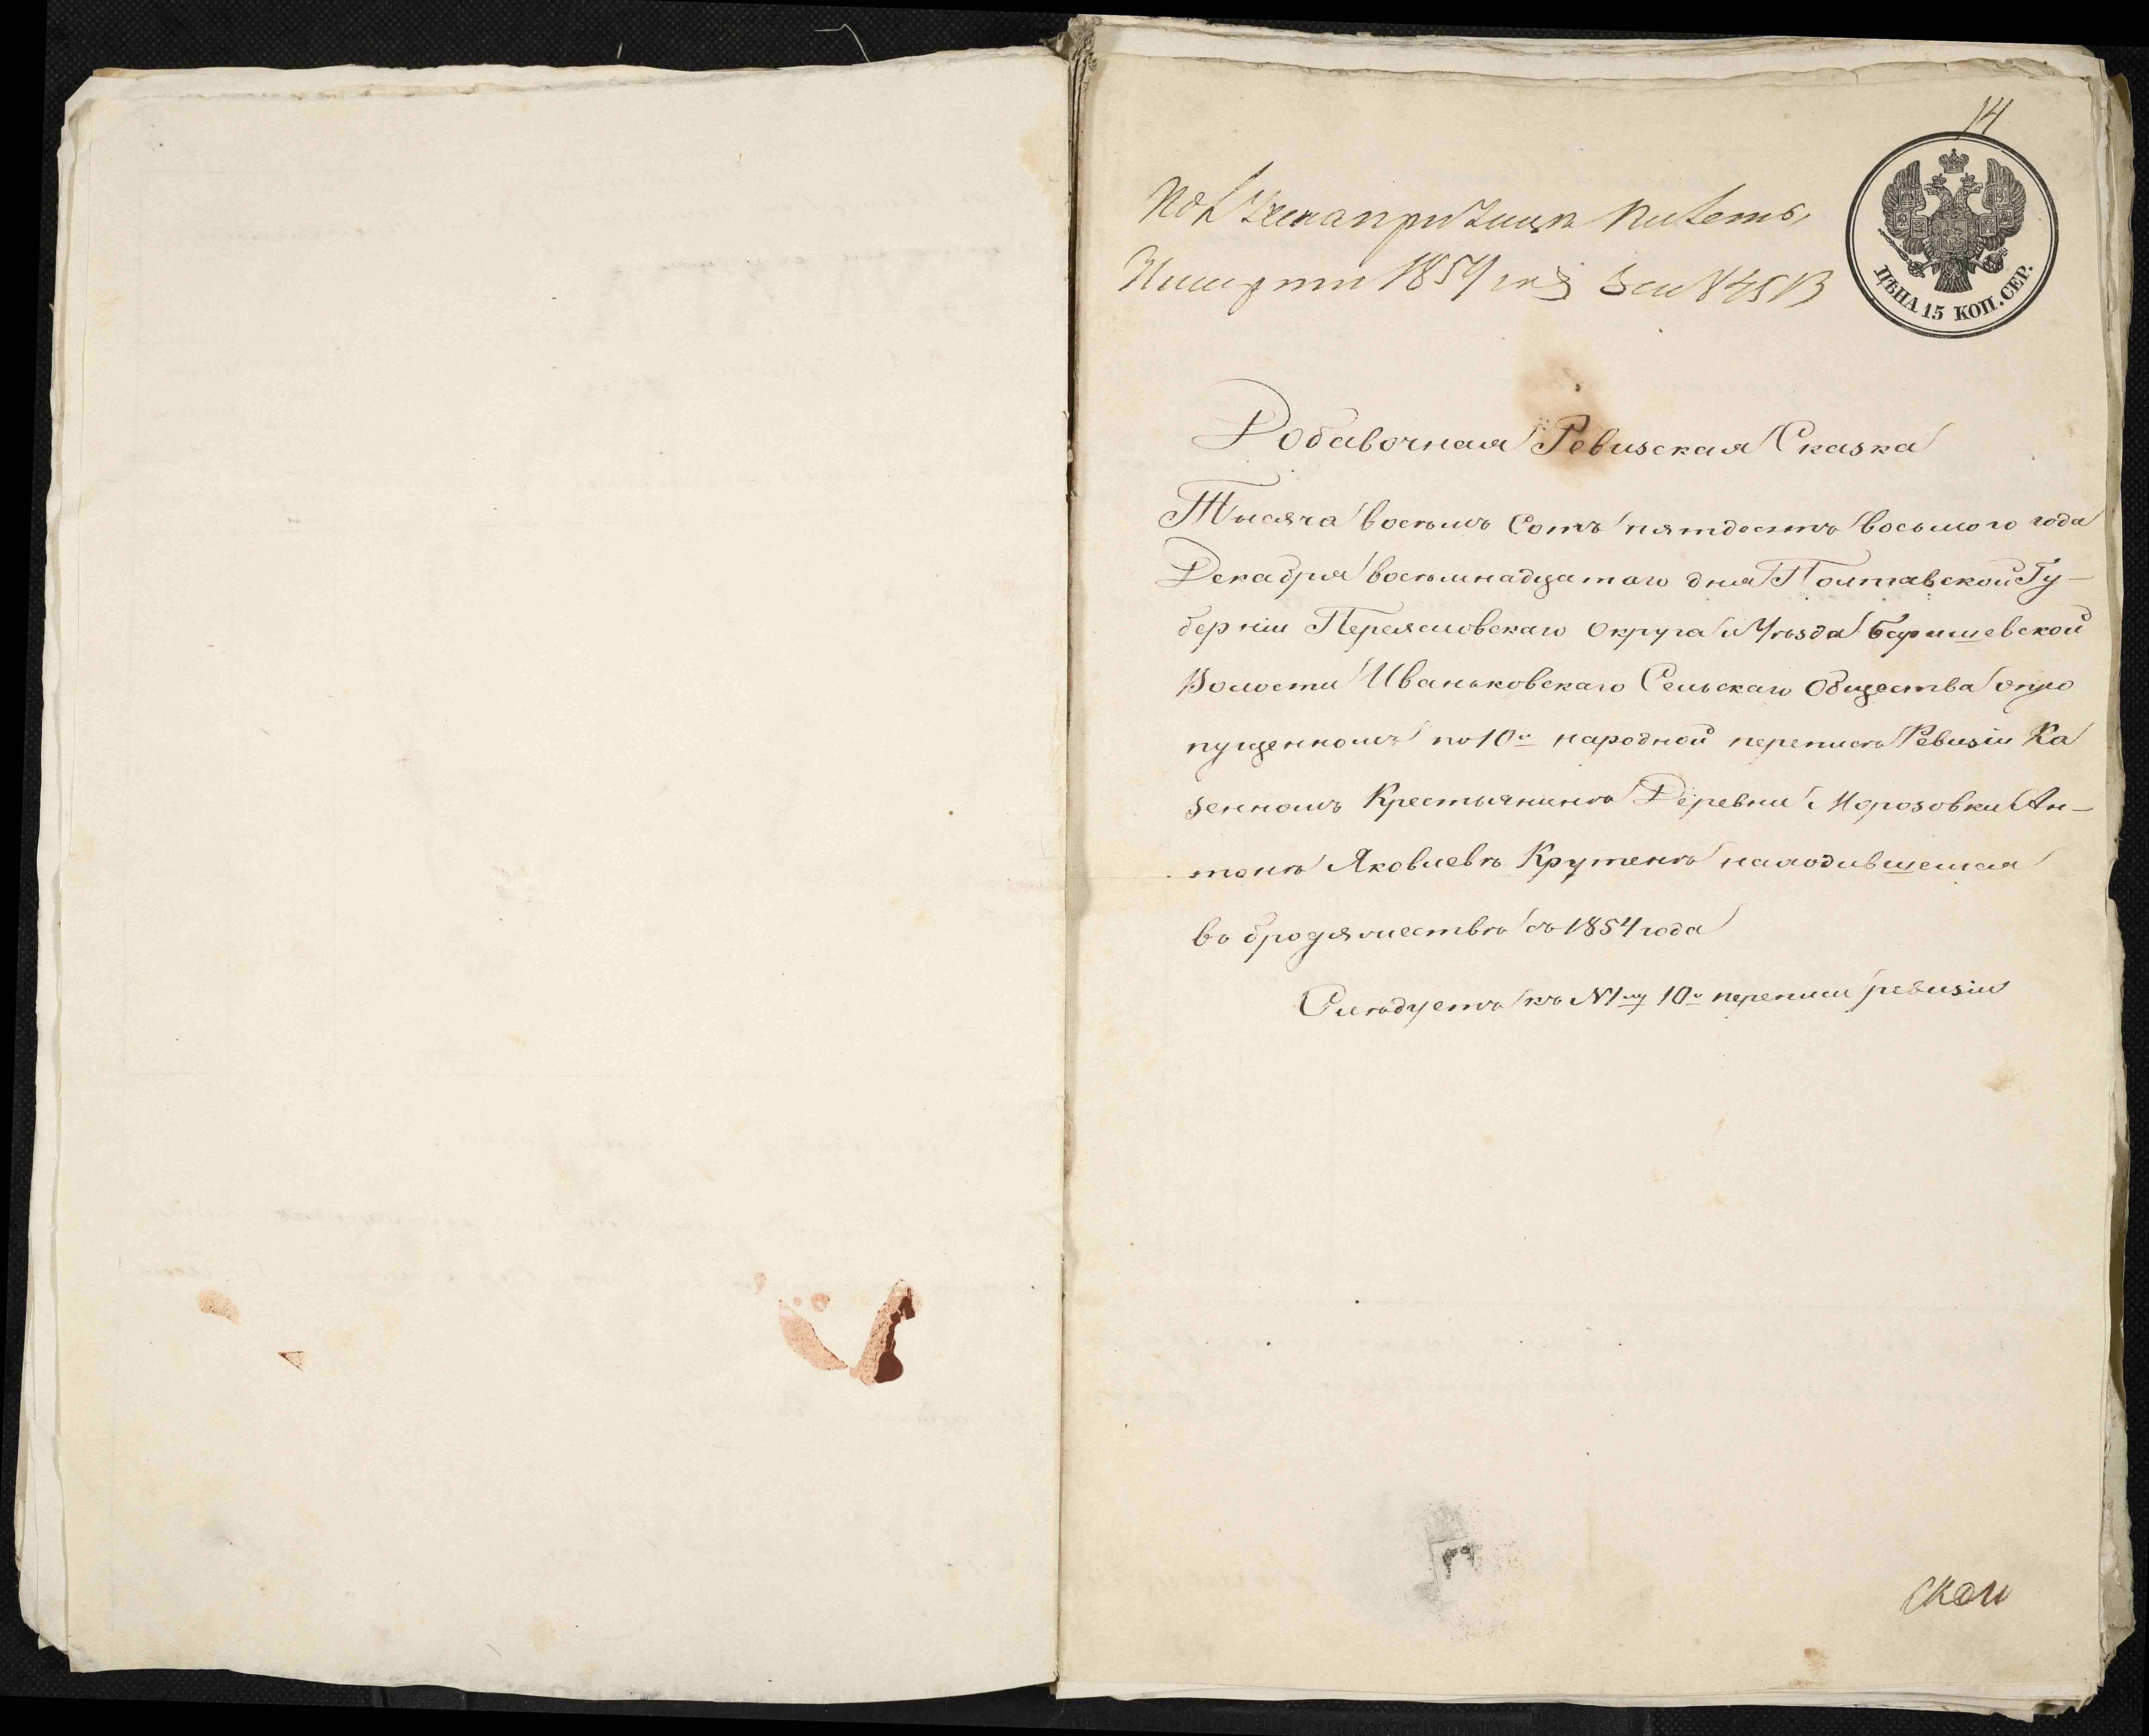 14
ЦѢНА 15 КОП. СЕР.
1859
Добавочная Ревизская Сказка
Тисяча восемь Сотъ пятдесятъ восьмого года
Декабря восемнадцатаго дня Полтавской Гу-
берніи Переясловскаго Округа и Уѣзда Баришевской
Волости Иваньковскаго Сельскаго Общества опро
пущенномъ по 10й народной переписѣ Ревизіи Ка
зенномъ Крестьянинѣ Деревни Морозовки Ан-
тонѣ Яковлевѣ Крутенѣ находившемся
въ бродяжествѣ съ 1854 года
Слѣдуетъ къ №1му 10й переписи ревизіи